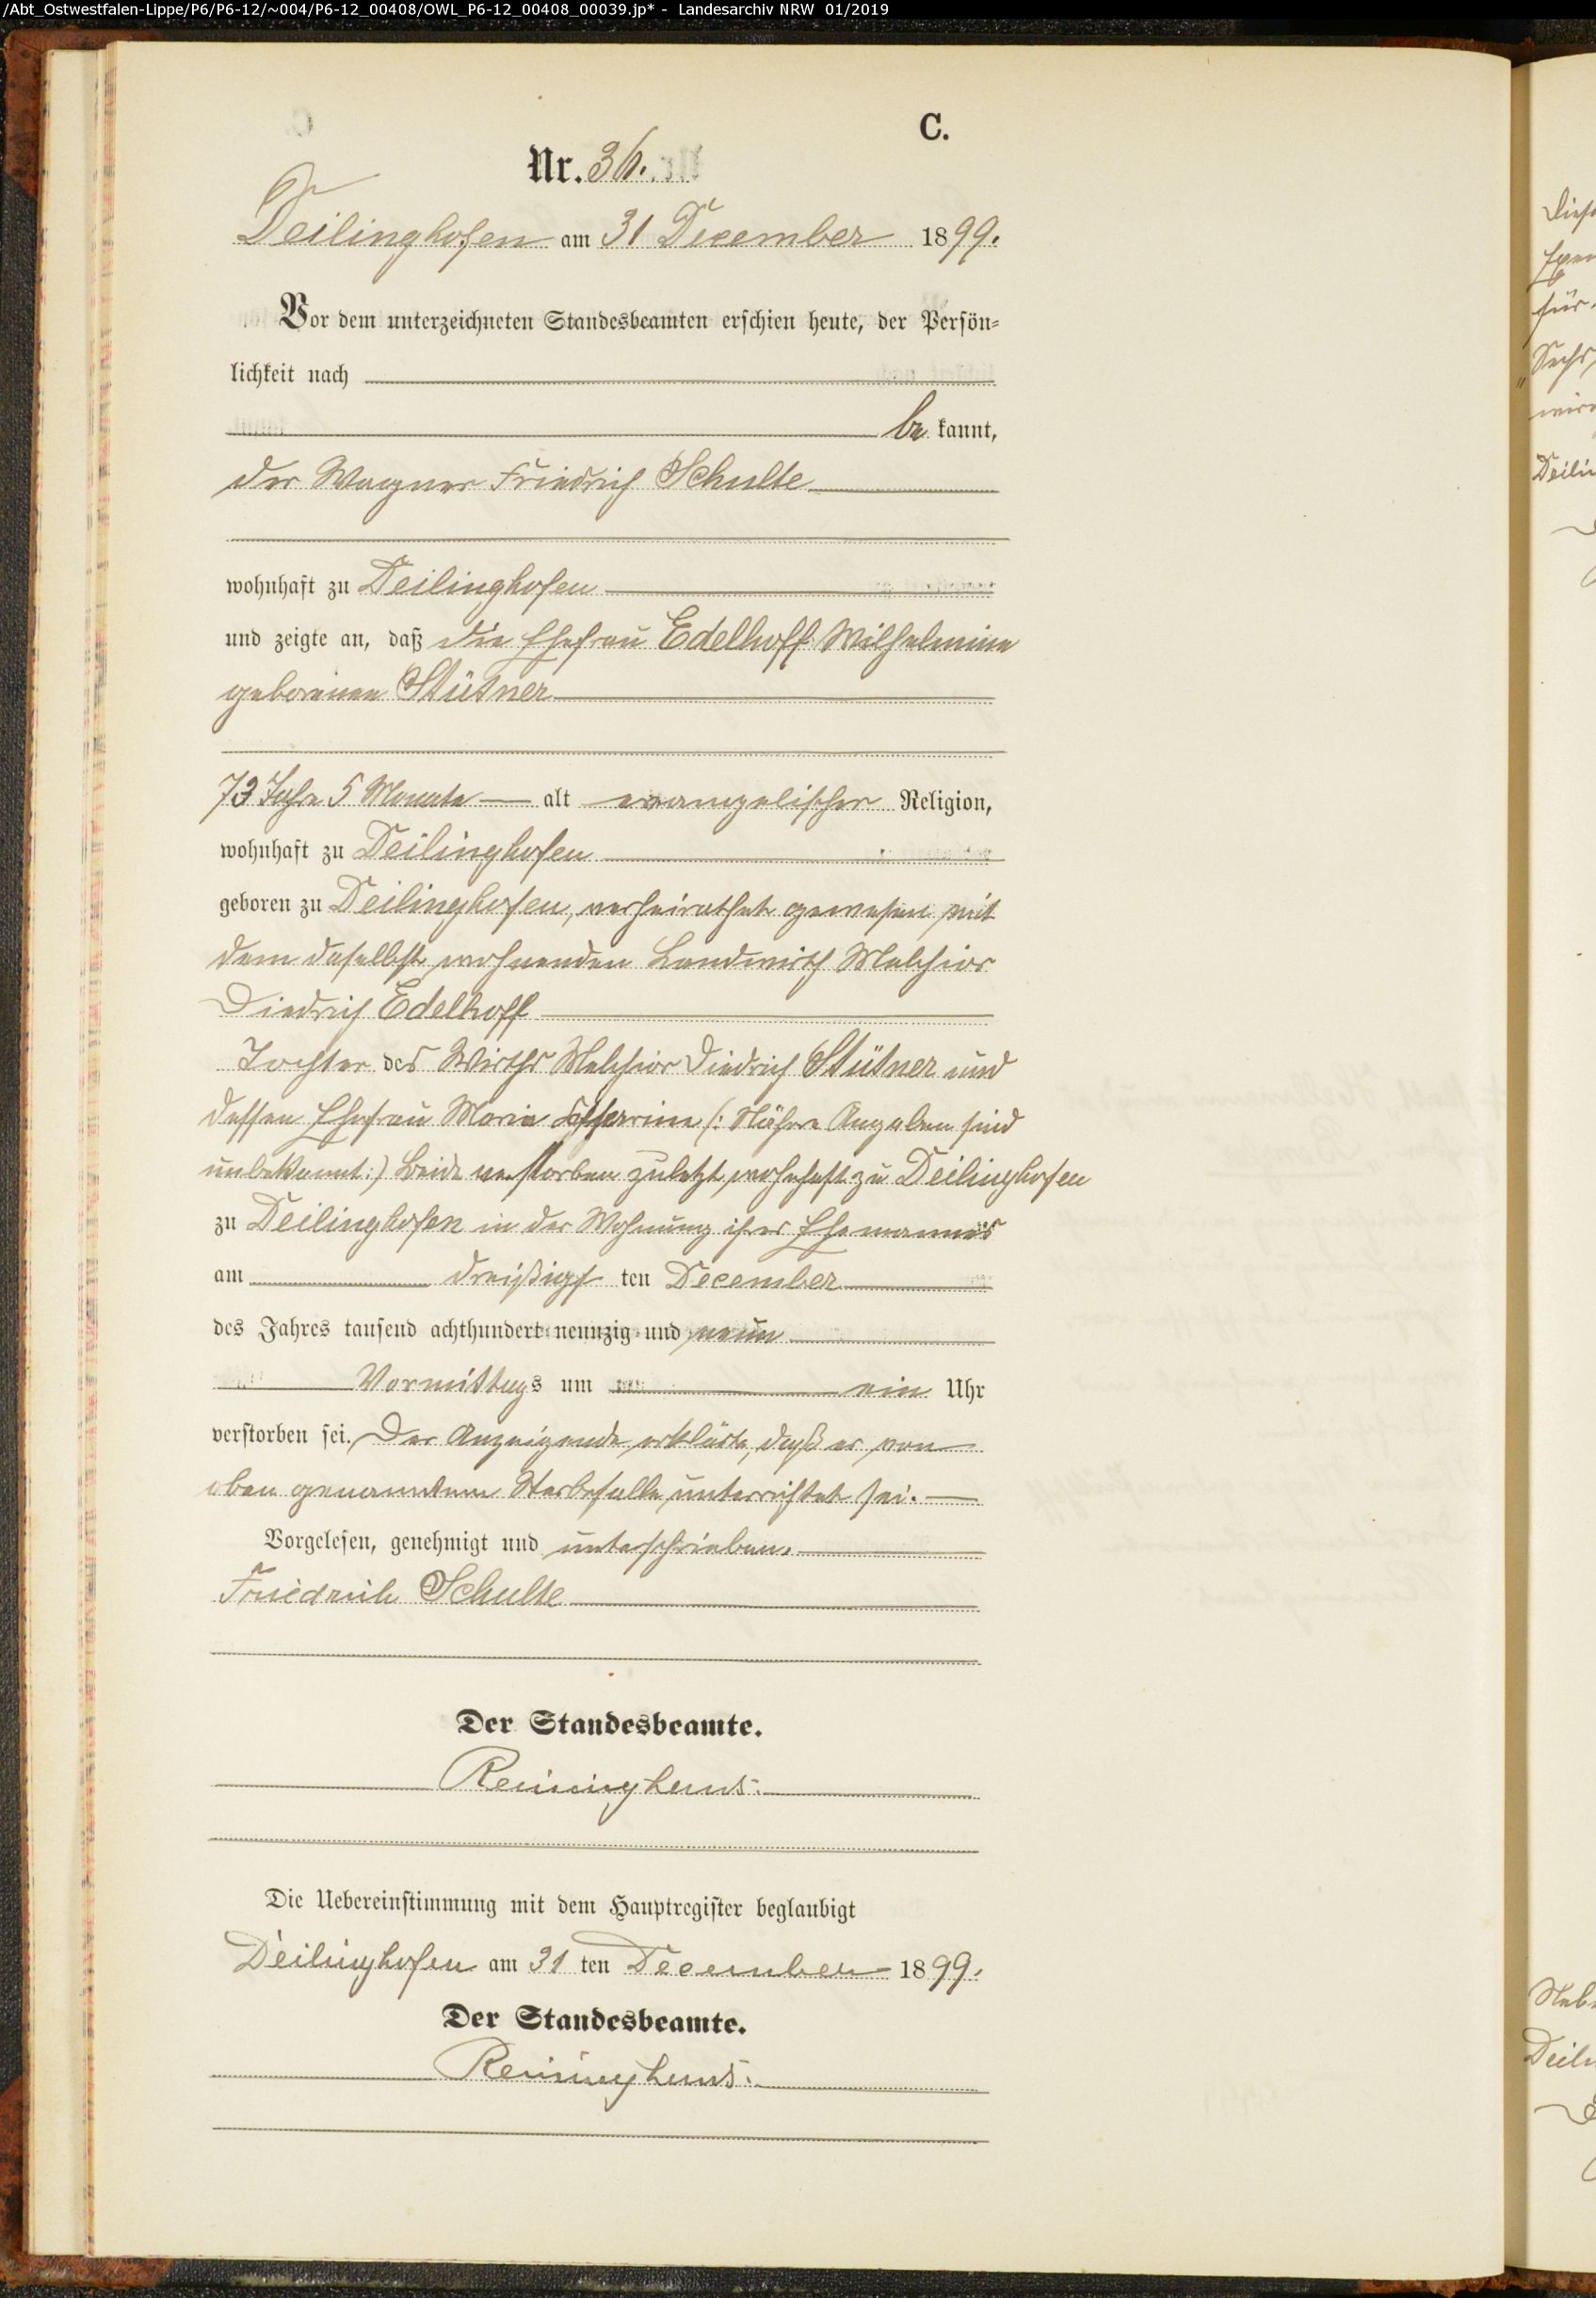 /Abt_Ostwestfalen-Lippe/P6/P6-12/~004/P6-12_00408/OWL_P6-12_00408_00039.jp* - Landesarchiv NRW 01/2019
C.
Nr. 36.
Deilinghofen am 31 December 1899.
Vor dem unterzeichneten Standesbeamten erschien heute, der Persön-
lichkeit nach
be kannt,
der Wagner Friedrich Schulte
wohnhaft zu Deilinghofen
und zeigte an, daß die Ehefrau Edelhoff Wilhelmine
geborenen Stütner
73 Jahre 5 Monate alt evangelischer Religion,
wohnhaft zu Deilinghofen
geboren zu Deilinghofen, verheirathet gewesen mit
dem daselbst wohnenden Landwirth Melchior
Diedrich Edelhoff
Tochter des Wirths Melchior Diedrich Stütner und
dessen Ehefrau Maria (: Nähere Angaben sind
unbekannt :) Beide verstorben zuletzt wohnhaft zu Deilinghofen
zu Deilinghofen in der Wohnung ihres Ehemannes
am dreißigs ten December
des Jahres tausend achthundert neunzig und neun
Vormittags um ein Uhr
verstorben sei. Der Anzeigende erklärte, daß er von
oben genanntem Sterbefalle unterrichtet sei.
Vorgelesen, genehmigt und unterschrieben.
Friedrich Schulte
Der Standesbeamte.
Die Uebereinstimmung mit dem Hauptregister beglaubigt
Deilinghofen am 31 ten December 1899.
Der Standesbeamte.